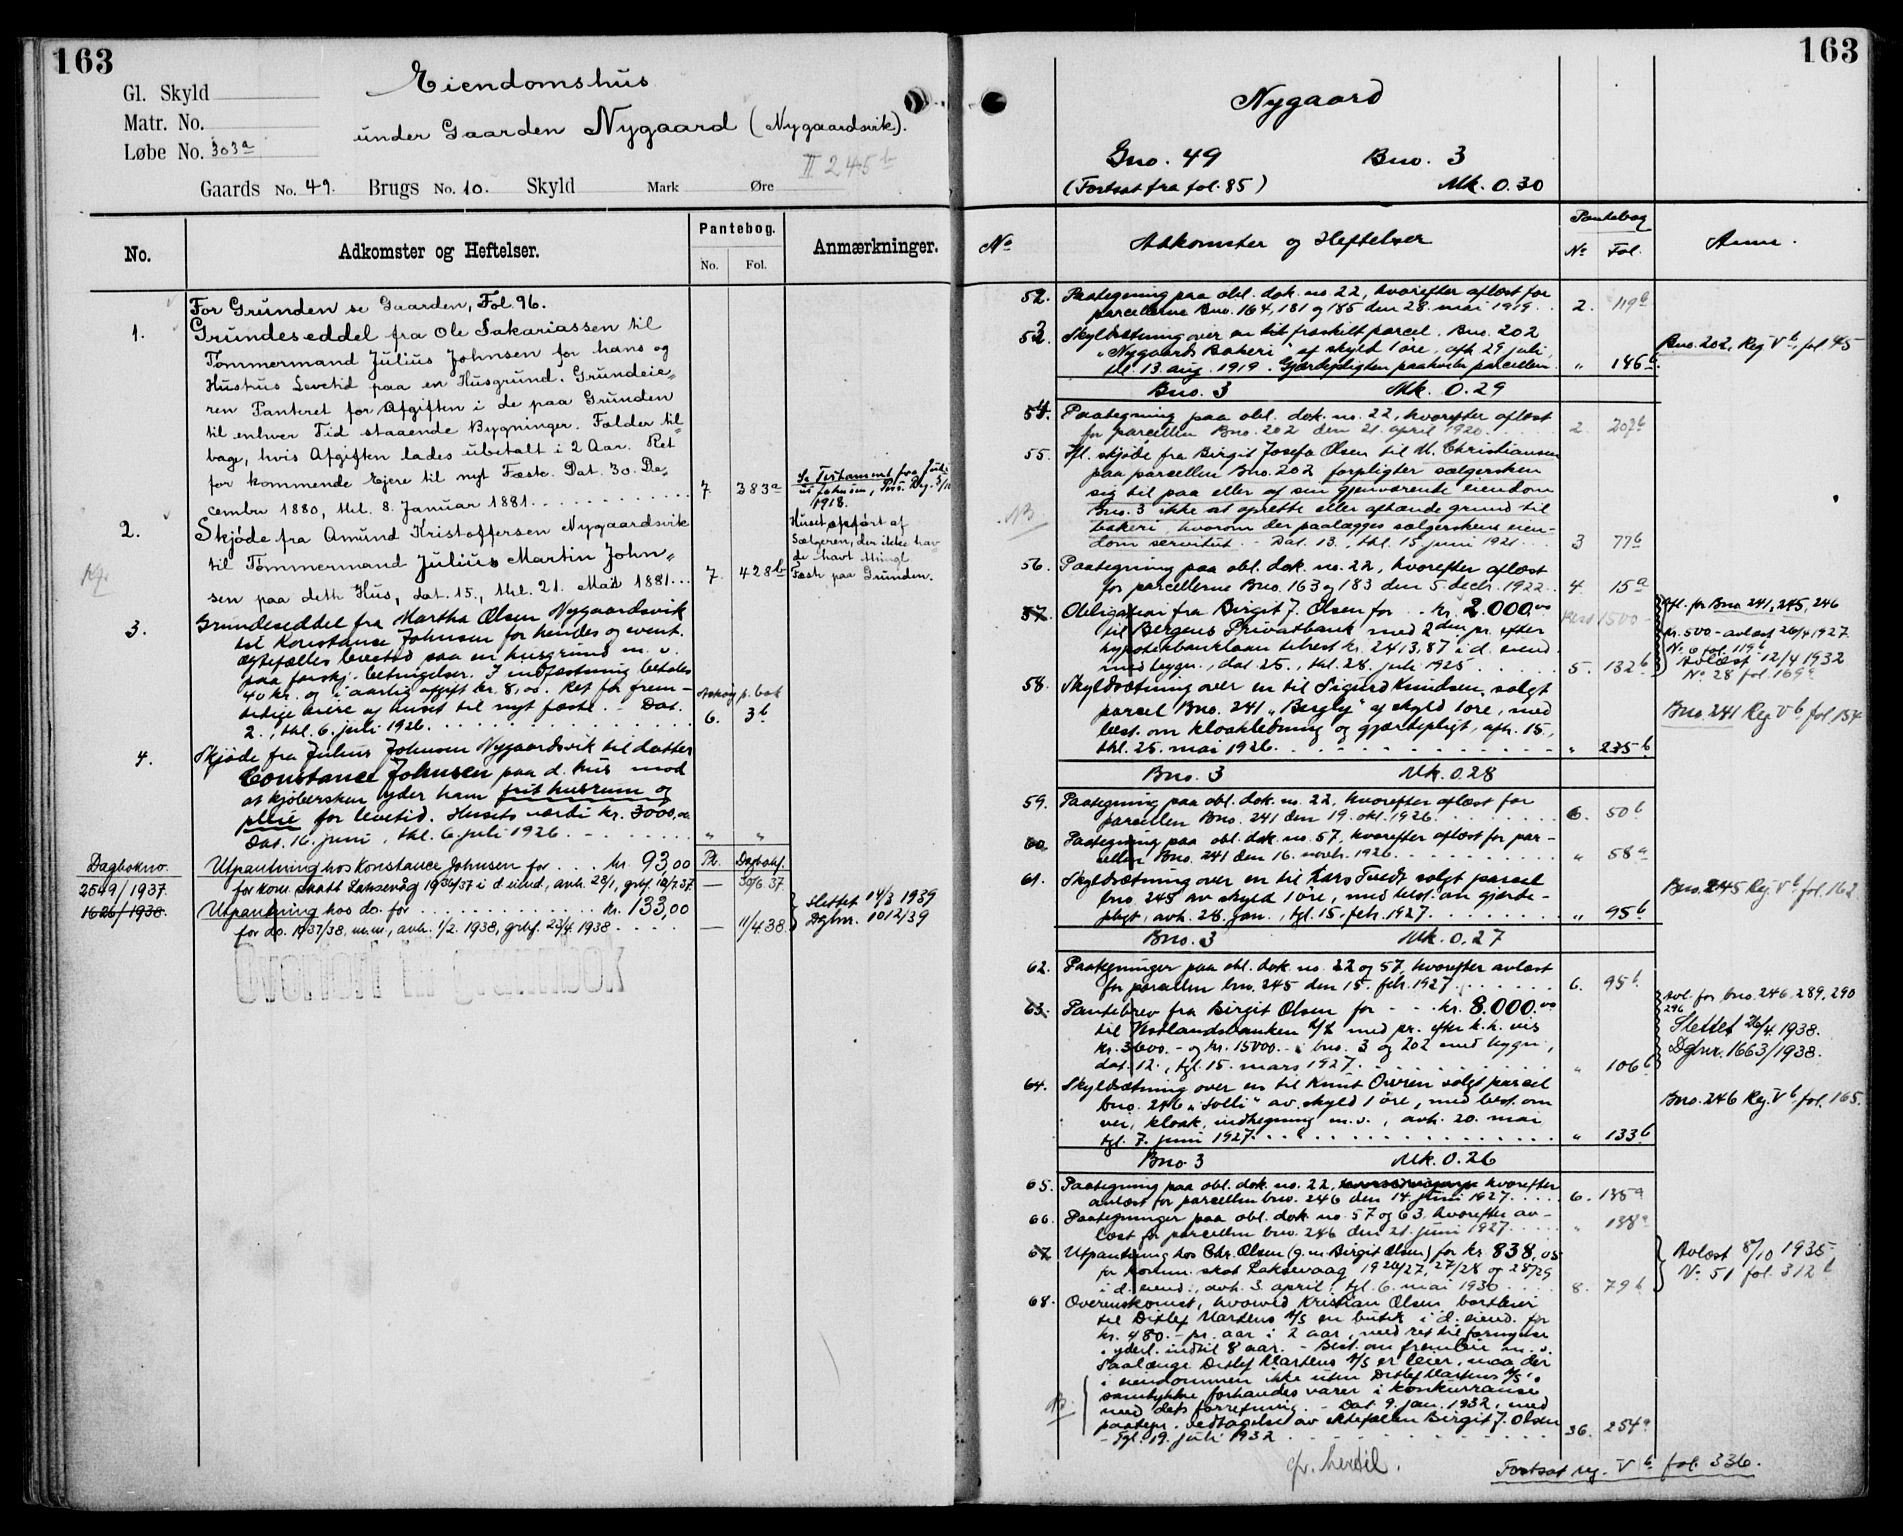 163
Gl. Skyld
Matr. No.
Løbe No. 303a
Eiendomshus
under Gaarden Nygaard (Nygaardsvik).
II 245b
Gaards No. 49. Brugs No. 10. Skyld Mark Øre
No. Adkomster og Heftelser. Pantebog. No. Fol. Anmærkninger.
For Grunden se Gaarden, Fol. 96.
1. Grundeseddel fra Ole Sakariassen til
Tømmermand Julius Johnsen for hans og
Hustrus Levetid paa en Husgrund. Grundeie„
ren Panteret for Afgiften i de paa Grunden
til enhver Tid staaende Bygninger. Falder til„
bage, hvis Afgiften lades ubetalt i 2 Aar. Ret
for kommende Ejere til nyt Fæste. Dat. 30. De„
cember 1880, thl. 8. Januar 1881. 7 383a
Se Testament fra Juli-
us Johnsen,
1918.
2. Skjøde fra Amund Kristoffersen Nygaardsvik
til Tømmermand Julius Martin John„
sen paa dette Hus, dat. 15., thl. 21. Mai 1881. 7. 428b
Huset opført af
Sælgeren, der ikke hav
de havt thingl.
Fæste paa Grunden.
3. Grundeseddel fra Martha Olsen Nygaardsvik
til Konstance Johnsen for hendes og event.
egtefælles levetid paa en husgrund m. v.
paa forskj. betingelser. I indfæstning betales
40 kr. og i aarlig afgift kr. 8,00. Ret for frem-
tidige eiere av huset til nyt fæste. - Dat.
2., thl. 6. juli 1926.
Askøy p. bok
6. 3b
4. Skjøde fra Julius Johnsen Nygaardsvik til datter
Constance Johnsen paa d. hus mod
at kjøbersken yder ham frit husrum og
pleie for levetid. Husets værdi kr. 3000,00
Dat. 16. juni, thl. 6. juli 1926. „ „
Dagbokno.
2549/1937. Utpantning hos Konstance Johnsen for kr. 93,00 Dagbokf.
for kom. skatt Laksevåg 1936/37 i d. eiend., avh. 28/1, grbf. 12/7 37 — 30/6 37.
1626/1938. Utpantning hos do. for kr. 133,00
for do. 1937/38, m.m., avh. 1/2. 1938, grbf. 23/4. 1938 — 11/4 38.
Slettet 14/3 1939
Dgbnr. 1012/39
Overført til grunnbok
163
Nygaard
Gno. 49 Bno. 3
(Fortsat fra fol. 85) Mk. 0.30
No Adkomster og Heftelser Pantebog No Fol. Anm.
52. Paategning paa obl. dok. no. 22, hvorefter aflæst for
parcellerne Bno. 164, 181 og 185 den 28. mai 1919. 2. 119a
53. Skyldsætning over en fraskilt parcel, Bno. 202
„Nygaards Bakeri" af skyld 1 øre, afh. 29 juli,
thl. 13. aug. 1919. Gjærdepligten paahviler parcellen. „ 146b
Bno. 202, Reg. Vb. fol 45
Bno. 3 Mk. 0.29
54. Paategning paa obl. dok. no. 22, hvorefter aflæst
for parcellen Bno. 202 den 21. april 1920. 2. 202b
55. Hl. skjøde fra Birgit Josefa Olsen til M. Christiansen
paa parcellen Bno. 202 forpligter sælgersken
sig til paa eller af sin gjenværende eiendom
Bno. 3 ikke at oprette eller afhænde grund til
bakeri, hvorom der paalægges sælgerskens eien-
dom servitut. - Dat. 13., thl. 15. juni 1921. 3 77b
NB
56. Paategning paa obl. dok. no. 22, hvorefter aflæst
for parcellerne Bno. 163 og 183 den 5. decbr. 1922. 4. 15a
57. Obligation fra Birgit J. Olsen for kr. 2.000,00
til Bergens Privatbank med 2den pr. efter
hypotekbanklaan tilrest kr. 2413,87 i d. eiend.
med bygn., dat. 25., thl. 28. juli 1925 5. 132b
Afl. for Bno. 241, 245, 246
kr. 500 - avlæst 26/4 1927.
No. 6 fol. 119b
Avlæst 12/4 1932
No 28 fol. 169a
58. Skyldsætning over en til Sigurd Knudsen, solgt
parcel Bno. 241 „Bergly" af skyld 1 øre, med
best. om kloakledning og gjærdepligt, afh. 15.,
thl. 25. mai 1926. „ 235b
Bno. 241 Reg. Vb. fol 154
Bno. 3 Mk. 0.28
59. Paategning paa obl. dok. no. 22, hvorefter aflæst for
parcellen Bno. 241 den 19. okt. 1926. 6. 50b
60. Paategning paa obl. dok. no. 57, hvorefter aflæst for par-
cellen Bno. 241 den 16. novbr. 1926. „ 58a
61. Skyldsætning over en til Lars Tvedt solgt parcel
bno. 245 av skyld 1 øre, med best. om gjærde-
pligt, avh. 28. jan., tgl. 15. febr. 1927. „ 95b
Bno. 245 Reg. Vb. fol. 162.
Bno. 3 Mk. 0.27
62. Paategninger paa obl. dok. no. 22 og 57, hvorefter avlæst
for parcellen bno. 245 den 15. febr. 1927. 6. 95b.
63. Pantebrev fra Birgit Olsen for kr. 8.000,00
til Vestlandsbanken A/S med pr. efter h.h.vis
kr. 3600.- og kr. 15000.- i bno. 3 og 202 med bygn.,
dat. 12., tgl. 15. mars 1927. „ 106b
Avl. for bno. 246, 289, 290
296
Slettet 26/4. 1938.
Dgbnr. 1663/1938.
64. Skyldsætning over en til Knut Overen solgt parcel
bno. 246 „Solli" av skyld 1 øre, med best. om
vei, kloak, indhegning m.v., avh. 20. mai
tgl. 7. juni 1927. „ 133b
Bno. 246 Reg. Vb. fol. 165.
Bno. 3 Mk. 0.26
65. Paategning paa obl. dok. no. 22, hvorefter
avlæst for parcellen bno. 246 den 14. juni 1927. 6. 135a
66. Paategninger paa obl. dok. no. 57 og 63, hvorefter av-
læst for parcellen bno. 246 den 21. juni 1927. „ 138a
67. Utpantning hos Chr. Olsen (g.m. Birgit Olsen) for kr. 838,05
for komm. skat Laksevaag 1926/27, 27/28 og 28/29
i d. eiend., avh. 3. april, tgl. 6. mai 1930 8. 79b
Avlæst 8/10 1935
No. 51 fol. 312b
68. Overenskomst, hvorved Kristian Olsen bortleier
til Ditlef Martens A/S en butik i d. eiend. for
kr. 480.- pr. aar i 2 aar, med ret til fornyelse
i yderl. indtil 8 aar. - Best. om fremleie m. v.
Saalænge Ditlef Martens A/S er leier, maa der
i eiendommen ikke uten Ditlef Martens A/S's
samtykke forhandles varer i konkurranse
med dets forretning. - Dat. 9. jan. 1932, med
paategn. vedtagelse av ektefællen Birgit J. Olsen
- Tgl. 19. juli 1932 36. 254a
NB
ovf. hertil.
Fortsat reg. Vb fol. 336.